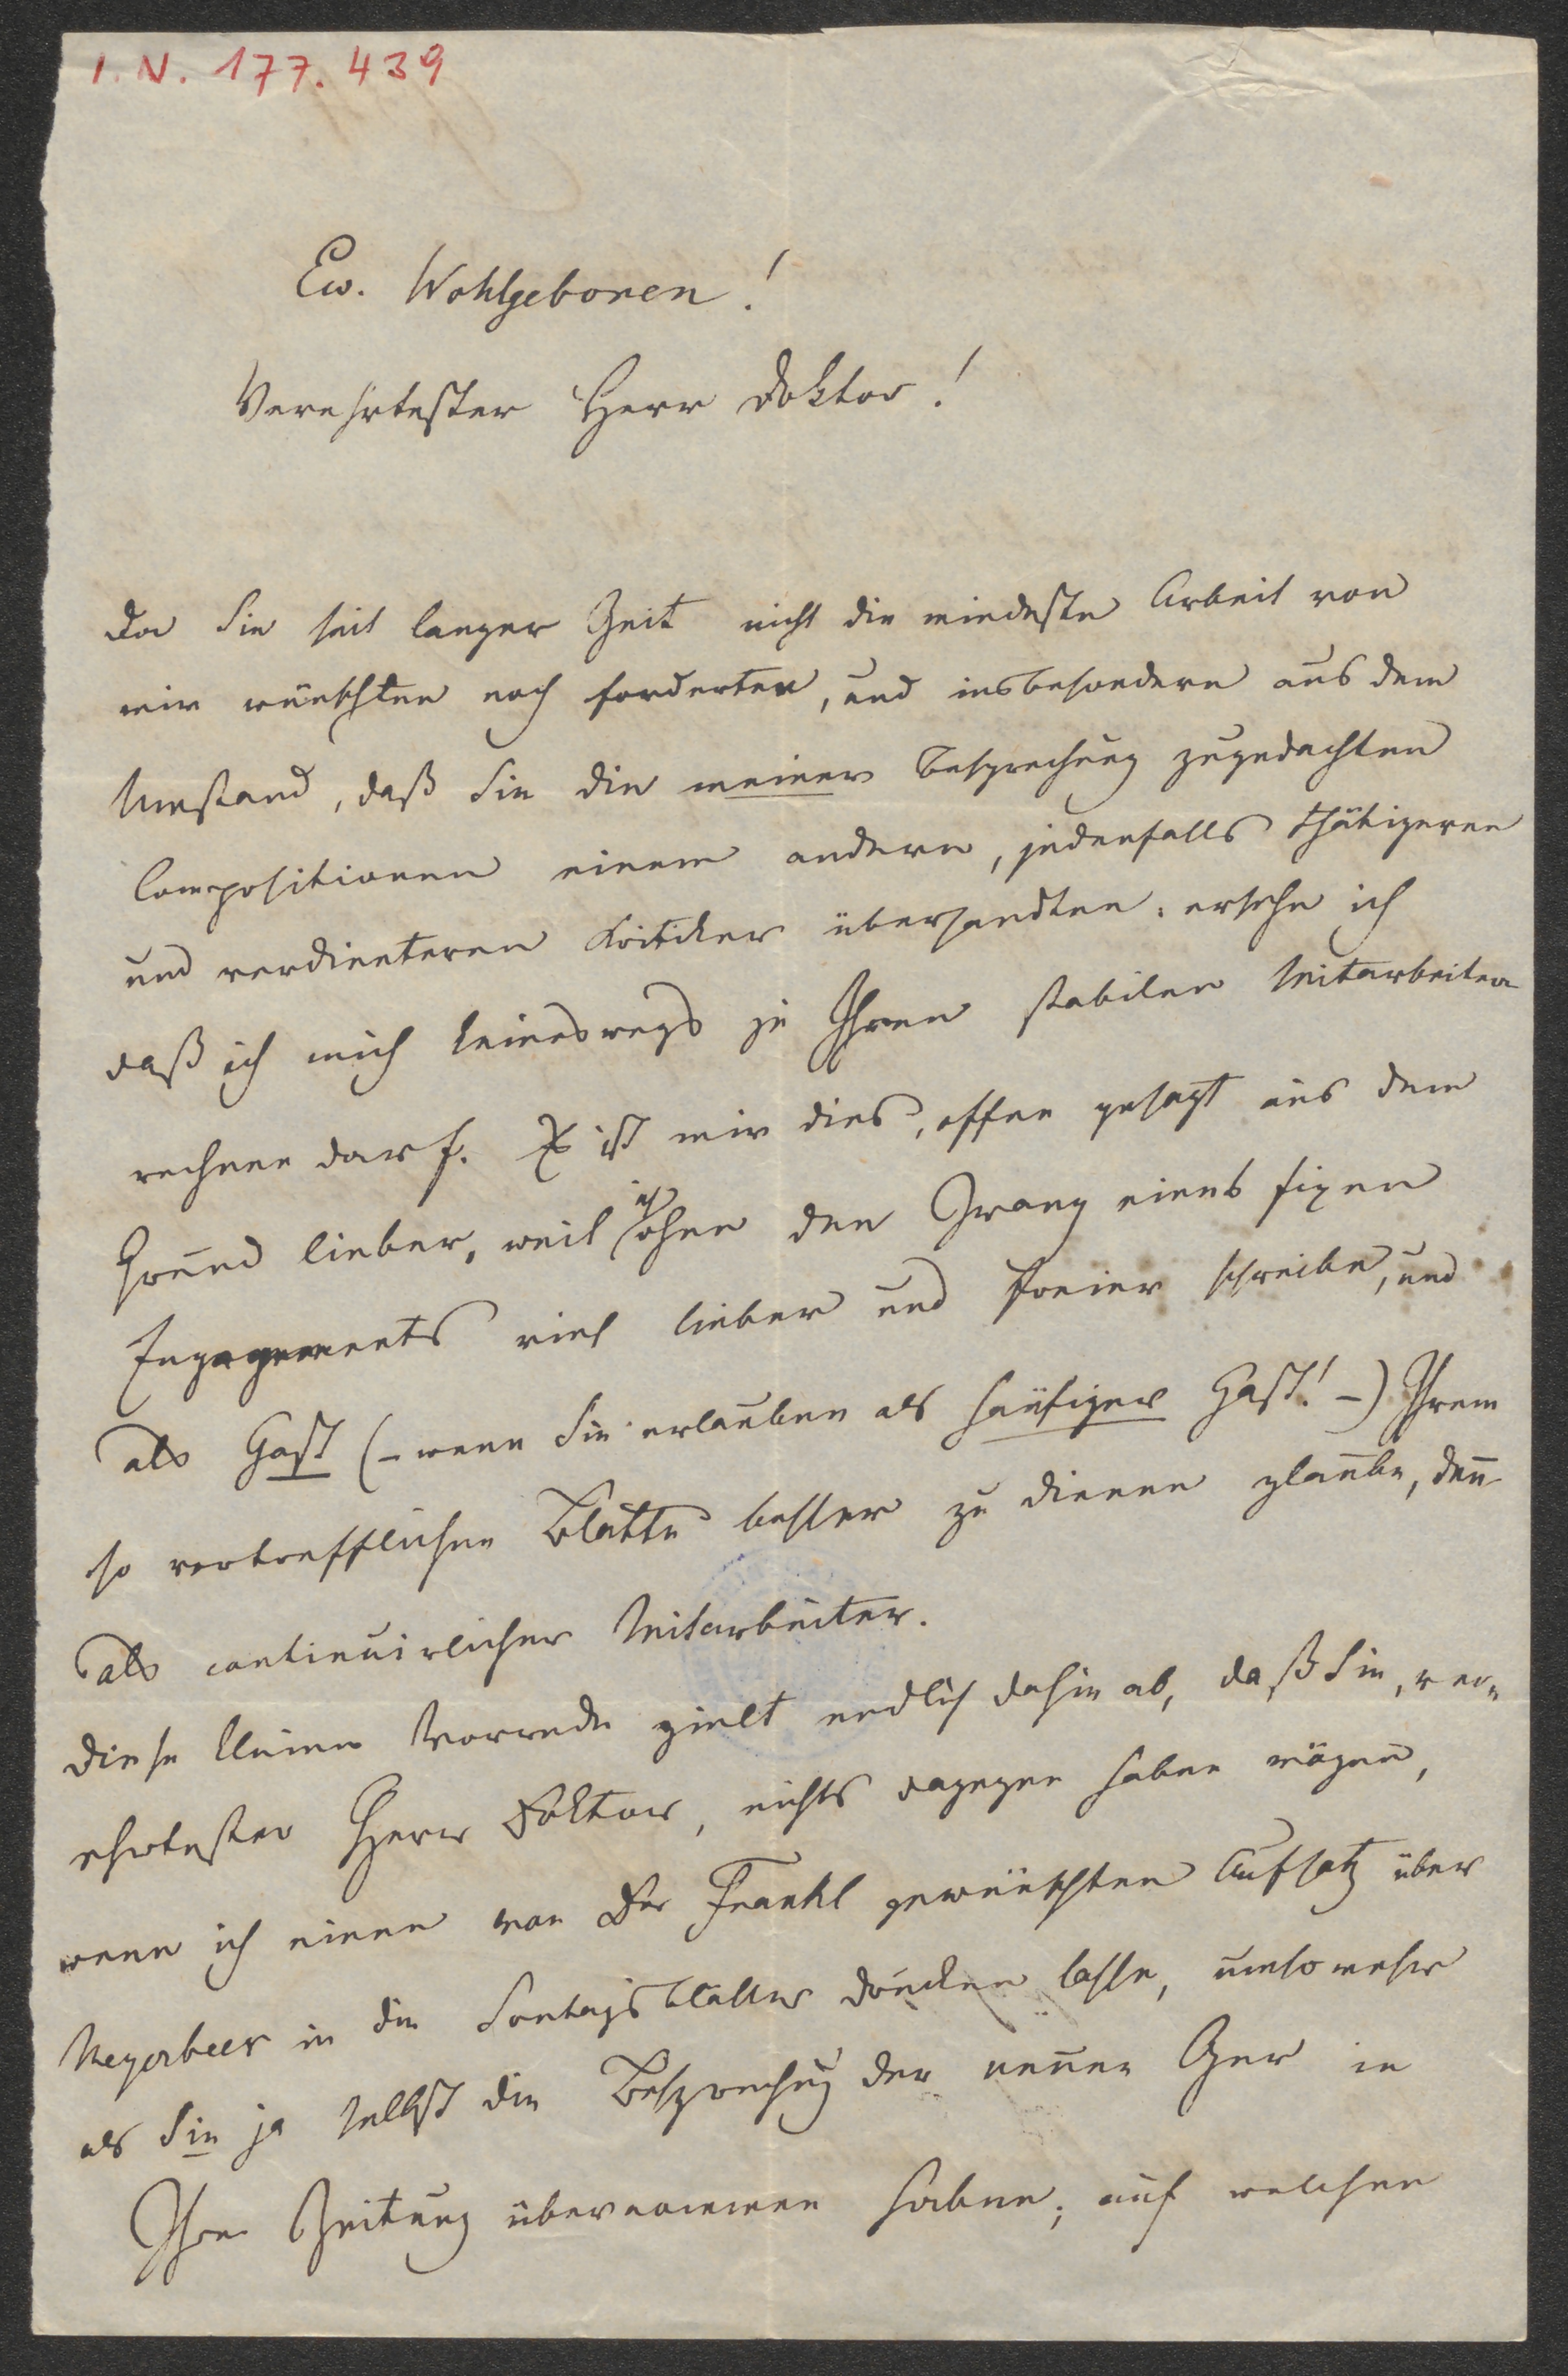 I. N. 177.439
Ew. Wohlgeboren!
Verehrtester Herr Doktor!
Da Sie seit langer Zeit nicht die mindeste Arbeit von
mir wünschten noch forderten, und insbesondere aus dem
Umstand, daß Sie die meiner Besprechung zugedachten
Compositionen einem andern, jedenfalls thätigeren
und verdienteren Kritiker übersandten, ersehe ich
daß ich mich keineswegs zu Ihren stabilen Mitarbeitern
rechnen darf. Es ist mir dies, offen gesagt aus dem
Grund lieber, weil ich ohne den Zwang eines fixen
Engagements viel lieber und freier schreibe, und
als Gast (– wenn Sie erlauben als häufiger Gast! –) Ihrem
so vortrefflichen Blatte besser zu dienen glaube, den̄
als continuirlicher Mitarbeiter.
Diese kleine Vorrede zielt endlich dahin ab, daß Sie, ver-
ehrtester Herr Doktor, nichts dagegen haben mögen,
wenn ich einen von Dr Frankl gewünschten Aufsatz über
Meyerbeer in die Sontagsblätter drucken lasse, umsomehr
als Sie ja selbst die Besprechung der neuen Oper in
Ihre Zeitung übernommen haben; auf welchen